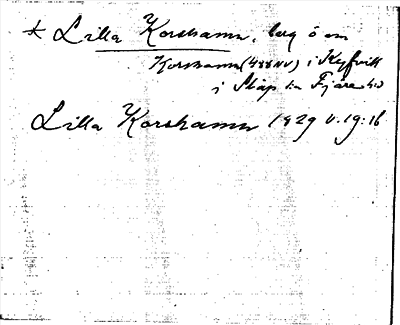 * Lilla Korshamn, bug ö om
Korshamn (488 NV) i Kyrkvik
i Släp sn Fjäre hd
Lilla Korshamn 1929 V. 19:16